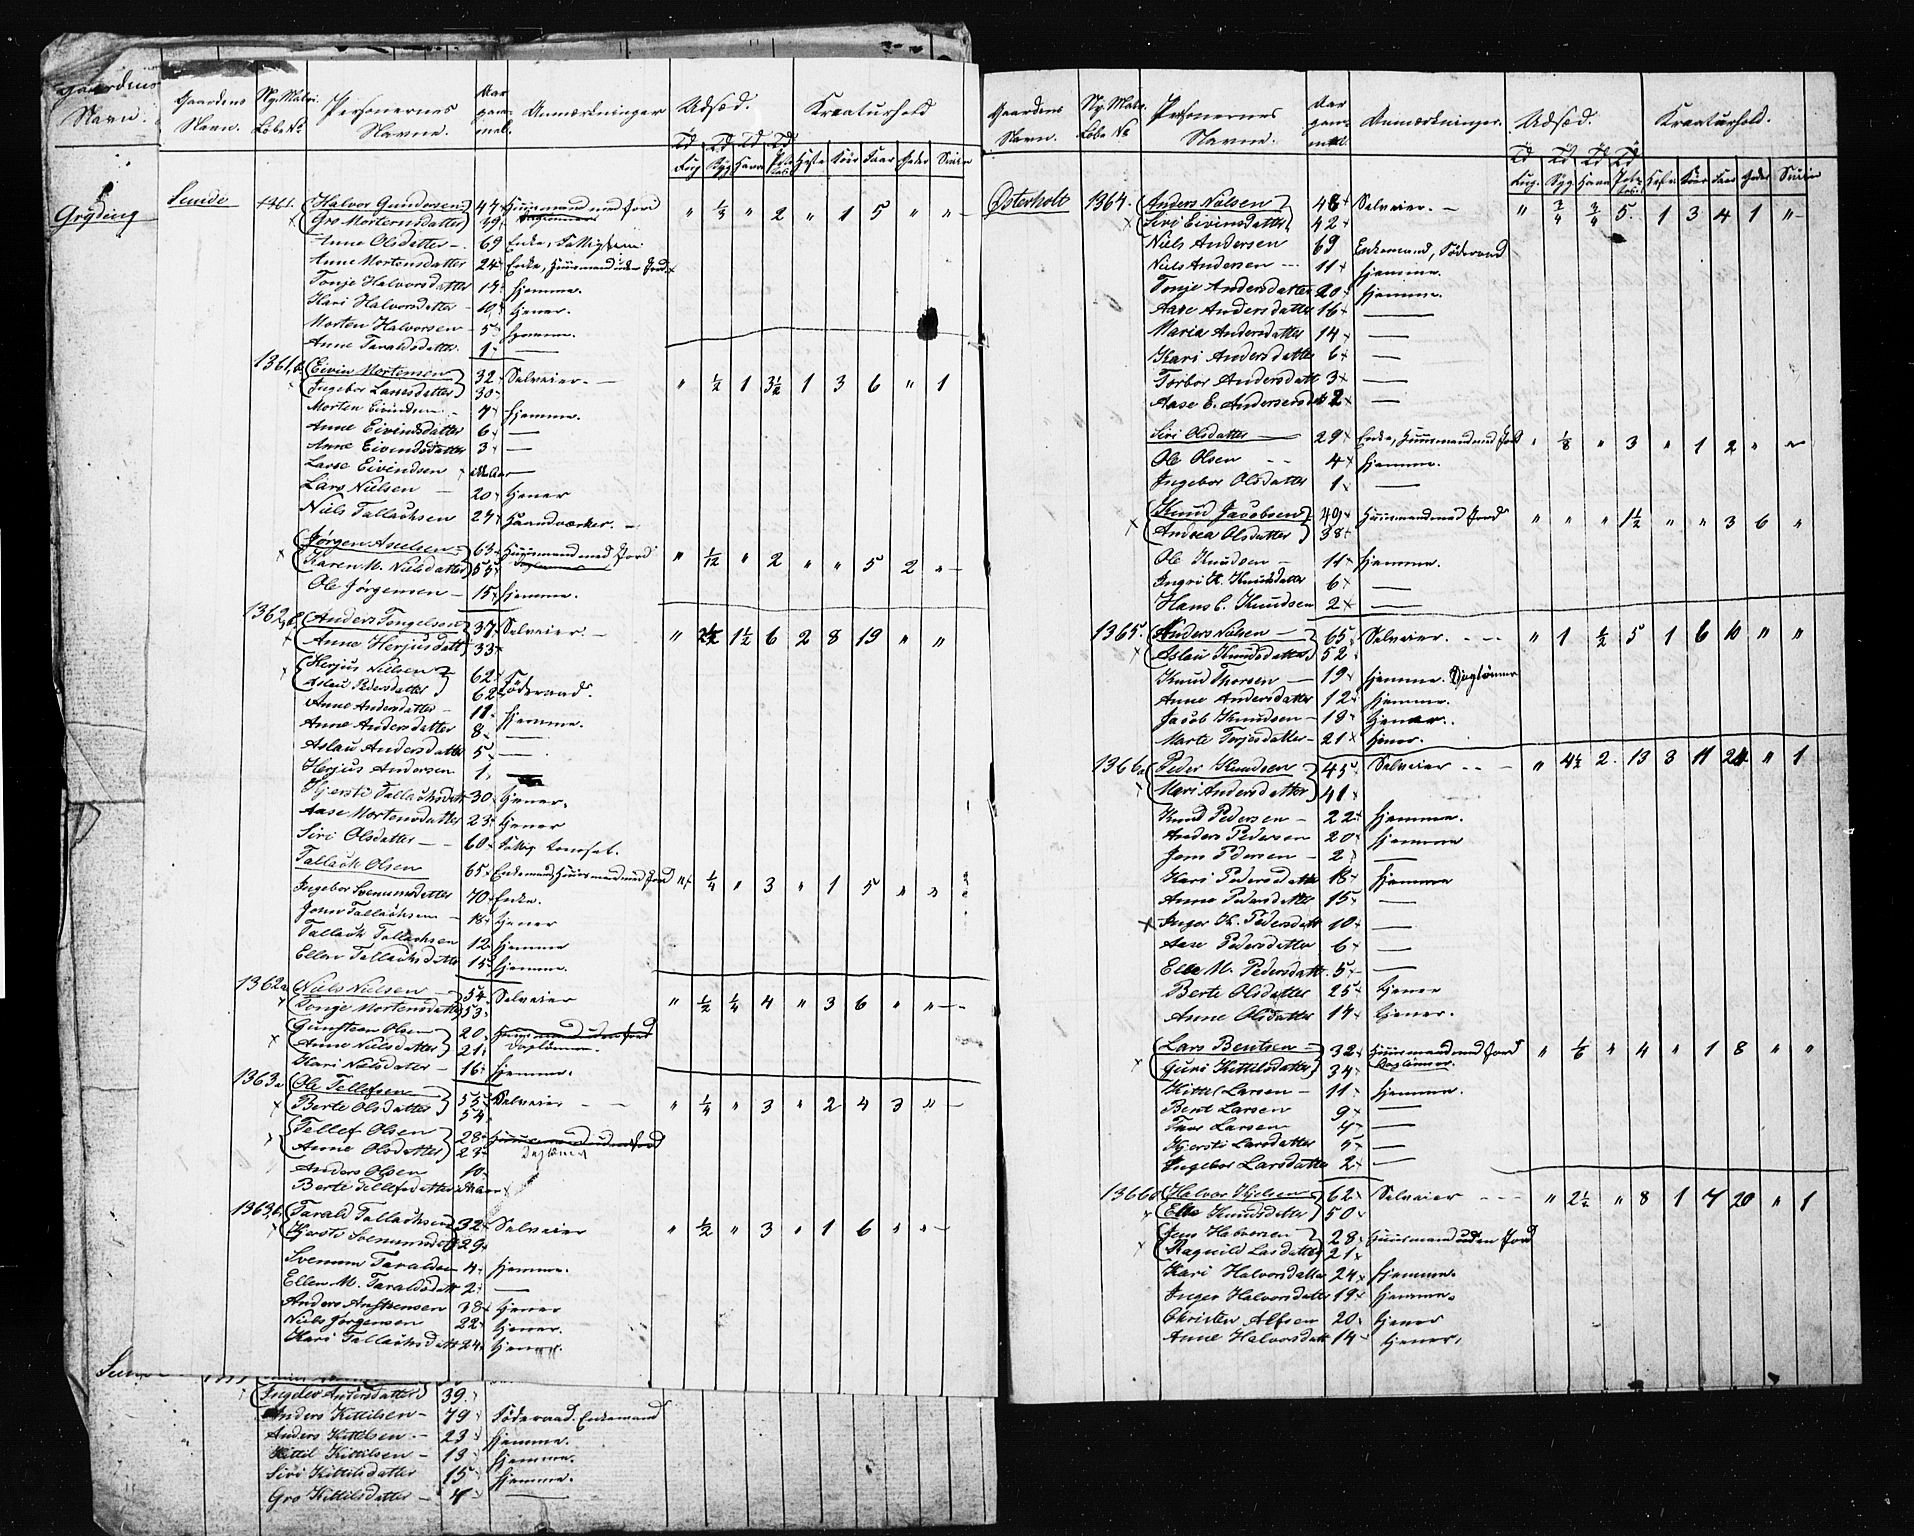 Gaardens Navn.
Gryding
Gaardens Navn. Ny Matri. Løbe No Personernes Navne. Aar gam- mel. Anmærkninger Udsæd. Kreaturhold
Td Rug Td Byg Td Havre Td Pote- toes Heste Køer Faar Geder Sviin
Sunde 1361. Halvor Gundersen 47 Huusmand med Jord " 1/3 " 2 " 1 5 " "
Gro Mortensdatter 49
Anne Olsdatter 69 Enke, Fattiglem
Anne Mortensdatter 24 Enke, Huusmand uden Jord
Tonje Halvorsdatter 17 hjemme.
Kari Halvorsdatter 10 tjener.
Morten Halvorsen 5 hjemme.
Anne Taraldsdatter 1 —
1361,b Eivin Mortensen 32 Selveier. " 1/2 1 3½ 1 3 6 " 1
Ingebor Larsdatter 30
Morten Eivindsen 7 hjemme.
Anne Eivindsdatter 6 —
Anne Eivindsdatter 3 —
Larse Eivindsen —
Lars Nielsen 20 tjener
Niels Tallachsen 27 Haandværker.
Jørgen Axelsen 63 Huusmand med Jord " 1/2 " 2 " " 5 2 "
Karen M. Nielsdatter 55
Ole Jørgensen 15 hjemme.
1362,b Anders Tengelsen 37 Selveier. " 2½ 1½ 6 2 8 19 " "
Anne Herjusdatt 33
Herjus Nielsen 62 Föderaad.
Aslau Pedersdatter 62
Anne Andersdatter 11 hjemme.
Anne Andersdatter 8 —
Aslau Andersdatter 5 —
Herjus Andersen 1 —
Kjersti Tallachsdatt 30 tjener.
Aase Mortensdatter 23 tjener
Siri Olsdatter 60 Fattig
Tallach Olsen 65 Enkemand, Huusmand med Jord " 1/4 " 3 " 1 5 " "
Ingebor Svenumsdatter 70 Enke.
John Tallachsen 18 tjener
Tallach Tallachsen 12 hjemme
Ellen Tallachsdatter 15 hjemme.
1362a Niels Nielsen 54 Selveier " 1/2 1/4 4 " 3 6 " "
Tonje Mortensdatter 53
Gunsteen Olsen 20 Huusmand uden Jord
Anne Nielsdatter 21 Daglönner
Kari Nielsdatter 16 hjemme.
1363a Ole Tellefsen 55 Selveier " 1/4 " 3 " 2 4 3 "
Berte Olsdatter 54
Tellef Olsen 28 Huusmand uden Jord
Anne Olsdatter 23
Anders Olsen 10
Berte Tellefsdatter
1363,b. Tarald Tallachsen 32 Selveier " 1/2 " 3 " 1 6 " "
Kjersti Svenumsdatt 29
Svenum Taraldsen 4 hjemme.
Ellen M. Taraldsdatt 2 —
Anders 38 tjener
Niels Jørgensen 22 tjener.
Kari Tallachsdatt 24 tjener.
Ingebor Andersdatter 39.
Anders Kittilsen 79 Föderaad. Enkemand
Anders Kittilsen 23 hjemme.
Kittil Kittilsen 19 hjemme.
Siri Kittilsdatter 15 hjemme.
Gro Kittilsdatter 4 —
Gaardens Navn. Ny Matr. Løbe No Personernes Navne. Aar gam- mel. Anmærkninger. Udsæd. Kreaturhold.
Td Rug. Td Byg Td Havre Td Pote- toes Heste Köer Faar Geder Sviin
Østerholt 1364. Anders Nielsen 48 Selveier. " 3/4 3/4 5. 1 3 4 1 "
Siri Eivindsdatter 42
Niels Andersen 69 Enkemand, Föderaad
Niels Andersen 11 hjemme.
Tonje Andersdatter 20 hjemme.
Aase Andersdatter 16 —
Maria Andersdatter 14 —
Kari Andersdatter 6 —
Torbor Andersdatt 3 —
Aase E. Andersdatt 2 —
Siri Olsdatter 29 Enke, Huusmand med Jord " 1/8 " 3 " 1 2 " "
Ole Olsen 4 hjemme.
Ingebor Olsdatter 1 —
Knud Jacobsen 49 Huusmand med Jord " " " 1½ " " 3 6 "
Andrea Olsdatter 38
Ole Knudsen 11 hjemme.
Ingri K. Knudsdatter 6 —
Hans C. Knudsen 2 —
1365. Anders Nielsen 65 Selveier. " 1 1/2 5 1 6 10 " "
Aslau Knudsdatter 52
Knud Thorsen 19 hjemme. Daglönner
Anne Andersdatter 12 hjemme.
Jacob Knudsen 18 tjener.
Marte Terjesdatter 21 tjener.
1366a Peder Knudsen 45 Selveier " 4½ 2. 13 3 11 24 " 1
Mari Andersdatter 41
Knud Pedersen 22 hjemme.
Anders Pedersen 20 hjemme
Jens Pedersen 2 —
Kari Pedersdatter 18 hjemme
Anne Pedersdatter 15 —
Inger K. Pedersdatt 10 —
Aase Pedersdatter 6 —
Elle M. Pedersdatt 5 —
Berte Olsdatter 25 tjener
Anne Olsdatter 14 tjener.
Lars Bentsen 32 Huusmand med Jord " 1/6 " 4 " 1 8 " "
Guri Kittilsdatter 34 Daglönner.
Kittel Larsen 11 hjemme.
Bent Larsen 9 —
Thor Larsen 7 —
Kjersti Larsdatter 5 —
Ingebor Larsdatter 2 —
1366b Halvor Kjelsen 62 Selveier " 2½ " 8 1 7 20 " 1
Elle Knudsdatter 50
Jens Halvorsen 28 Huusmand uden Jord
Ragnild Larsdatter 21
Kari Halvorsdatter 24 hjemme.
Inger Halvorsdatter 19 hjemme.
Christen Alfsen 20 tjener
Anne Halvorsdatt 14 tjener.